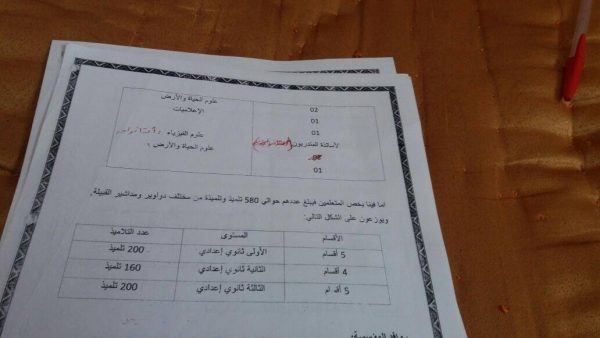 علوم الحياة والأرض 02
الإعلاميات 01
01
الأساتذة المتدربون
علوم الفيزياء
علوم الحياة والأرض 01
اما فيما يخص المتعلمين فيبلغ عددهم حوالي 580 تلميذ وتلميذة من مختلف دواوير ومداشير القبيلة
ويوزعون على الشكل التالي:
الأقسام المستوى عدد التلاميذ
5 أقسام الأولى ثانوي إعدادي 200 تلميذ
4 أقسام الثانية ثانوي إعدادي 160 تلميذ
5 أقسام الثالثة ثانوي إعدادي 200 تلميذ